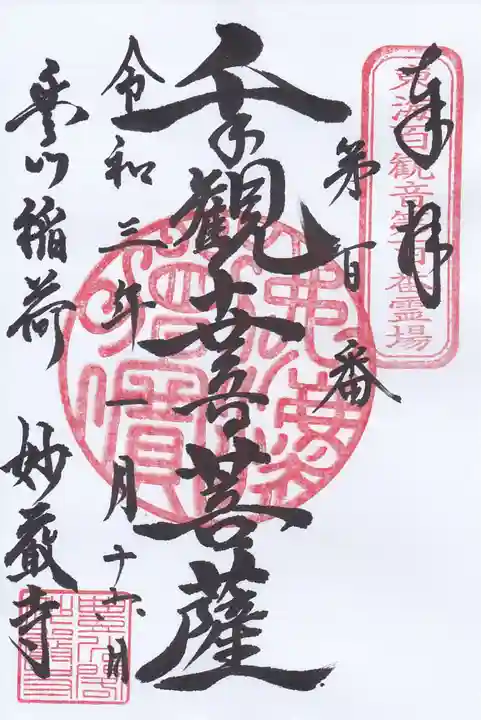 東海百観音第百番霊場
奉拝
第百番
千手観世音菩薩
令和三年一月十六日
豊川稲荷
妙厳寺